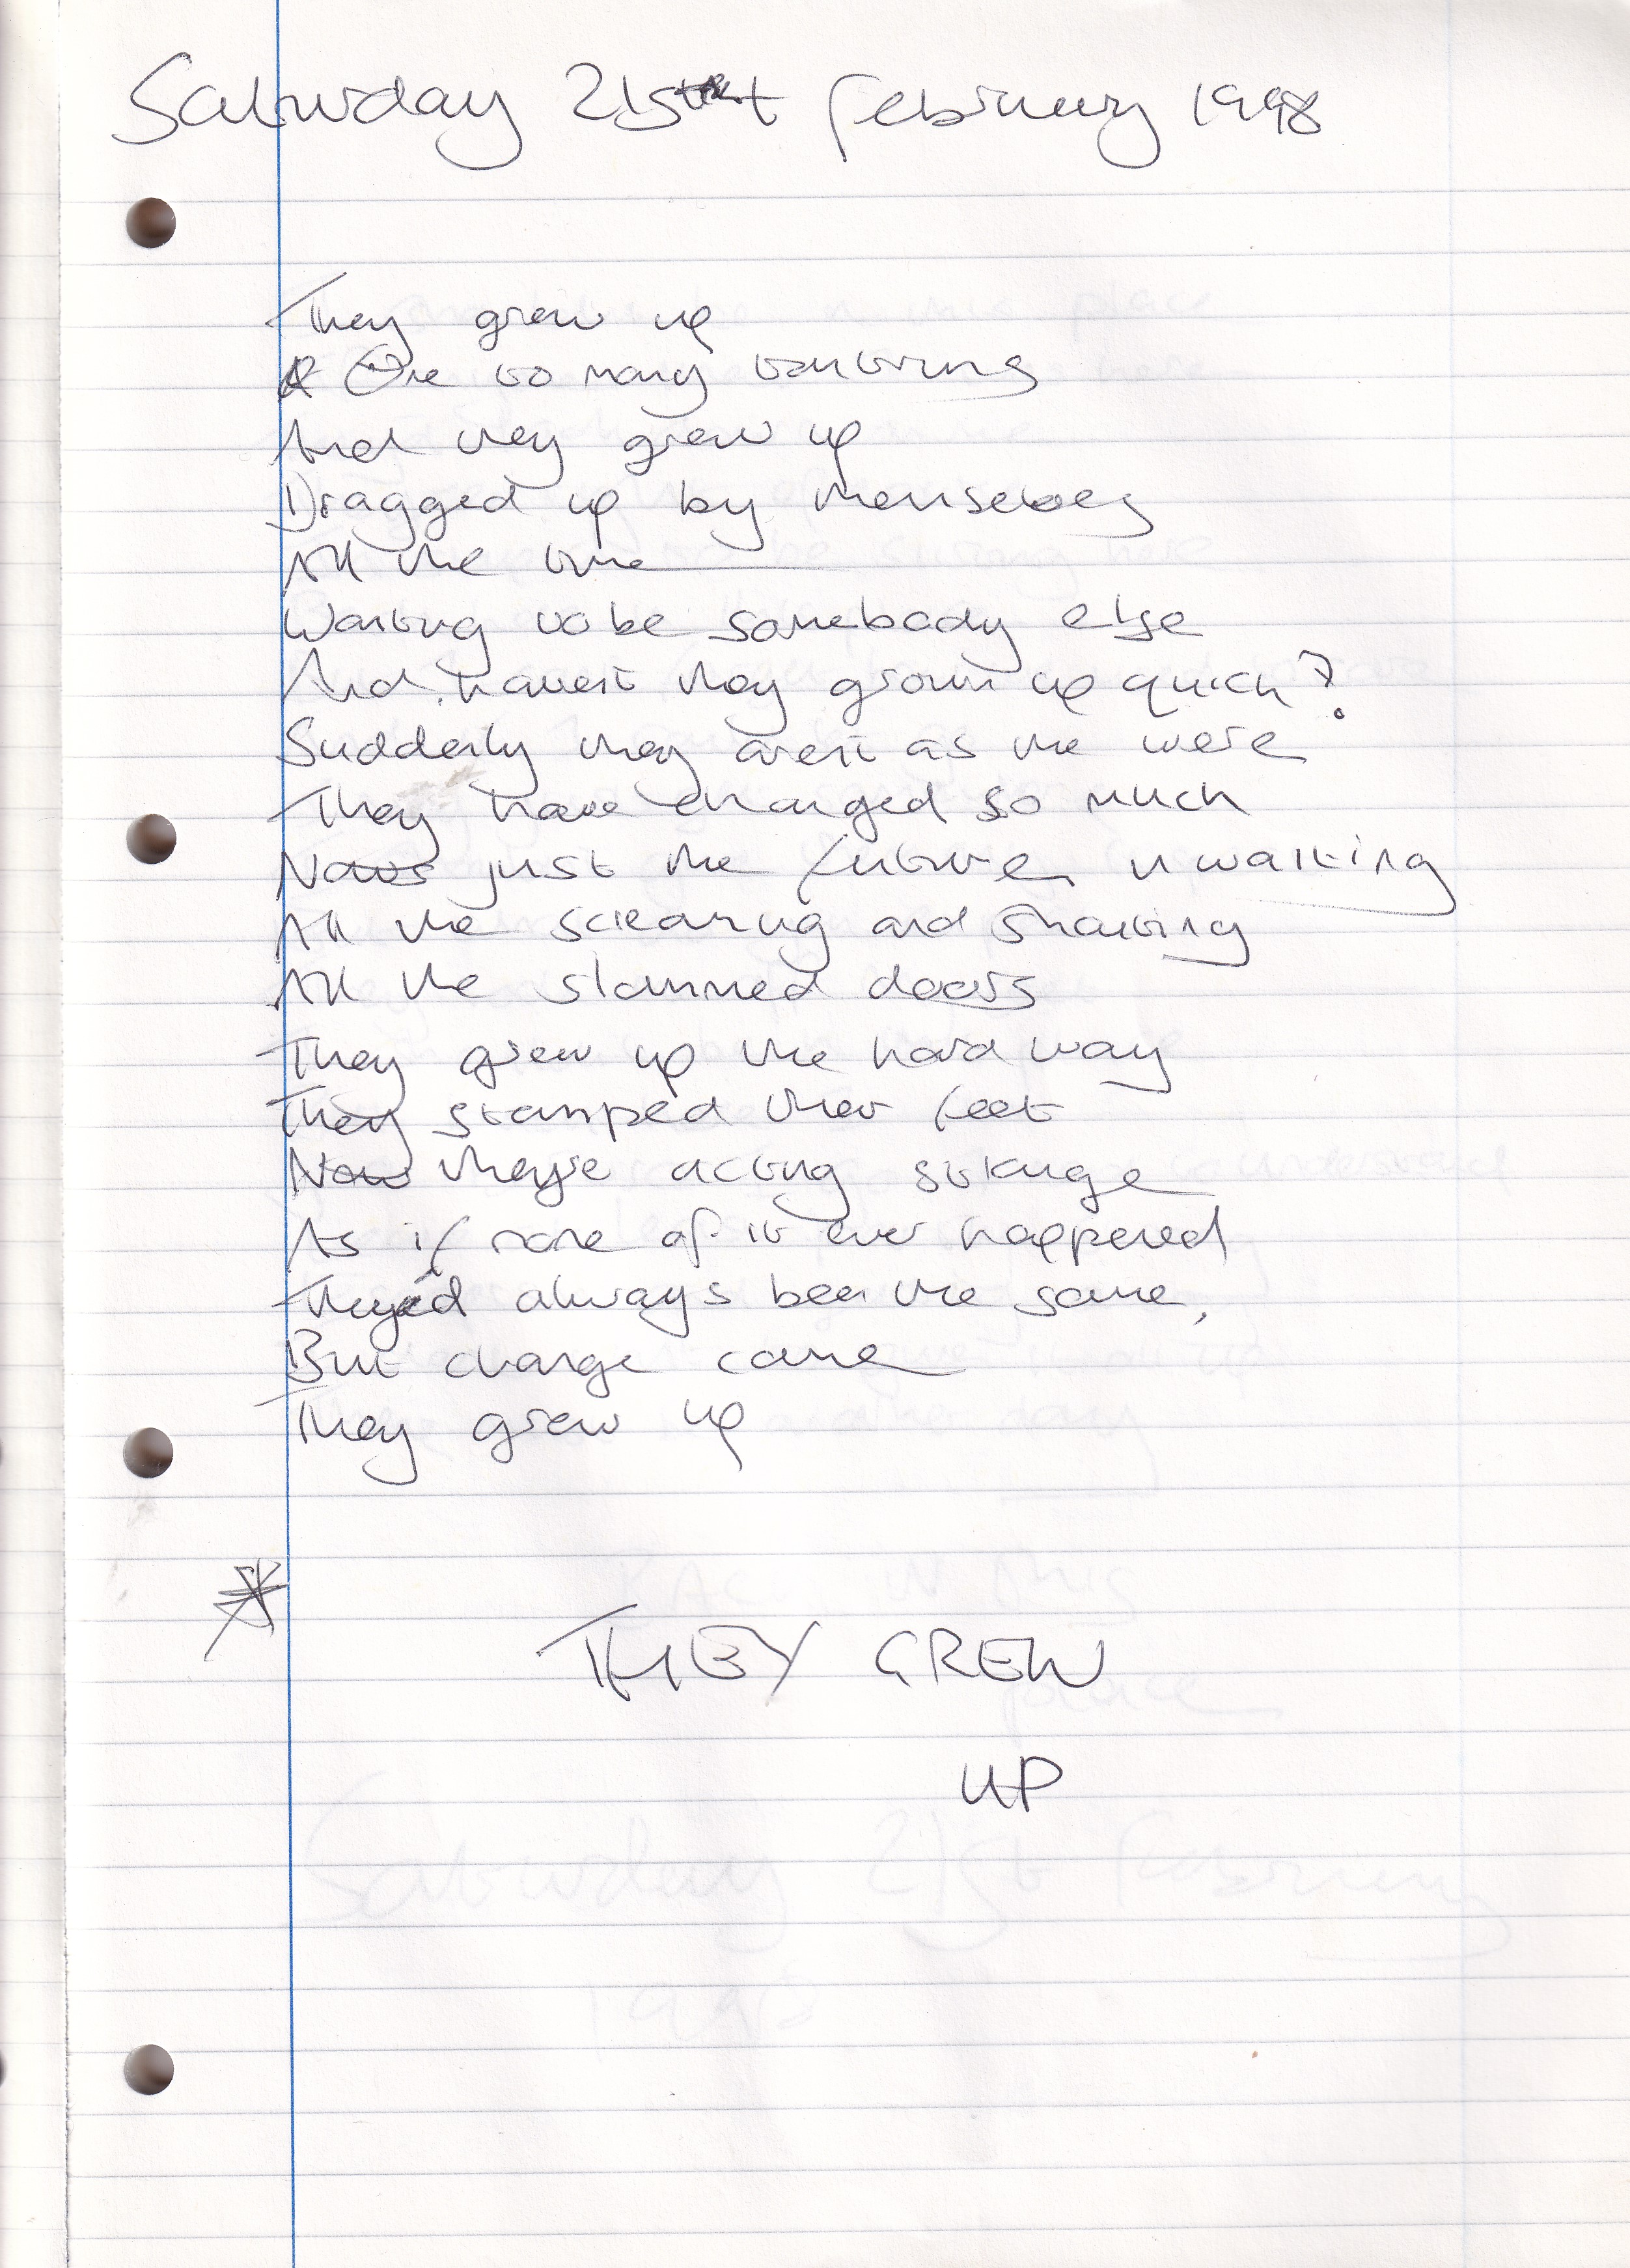 Saturday 21st February 1998
They grew up
One too many tantrums
And they grew up
Dragged up by themselves
All the time
Waiting to be somebody else
And haven't they grown up quick?
Suddenly they aren't as the were
They have changed so much
Now just the future, n waiting
All the screaming and shouting
All the slammed doors
They grew up the hard way
They stamped their feet
Now they're acting strange
As if none of it ever happened
They'd always been the same,
But change came
They grew up
THEY GREW
UP